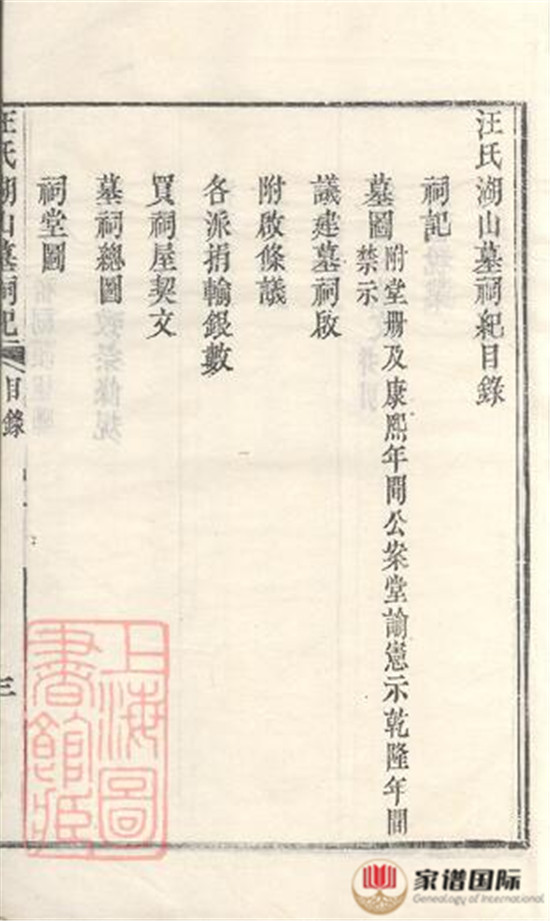 汪氏湖山墓祠紀目錄
祠記
墓圖 附堂册及康熙年間公案堂諭憲示乾隆年間禁示
議建墓祠啟
附啟條議
各派捐輸銀數
買祠屋契文
墓祠總圖
祠堂圖
汪氏湖山墓祠紀 目錄
三
上海圖書館藏
家谱国际
Genealogy of International